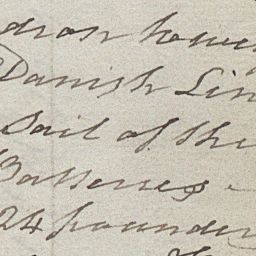 dron howev
Danish Lin
Sail of the
Batteries
24 pounder